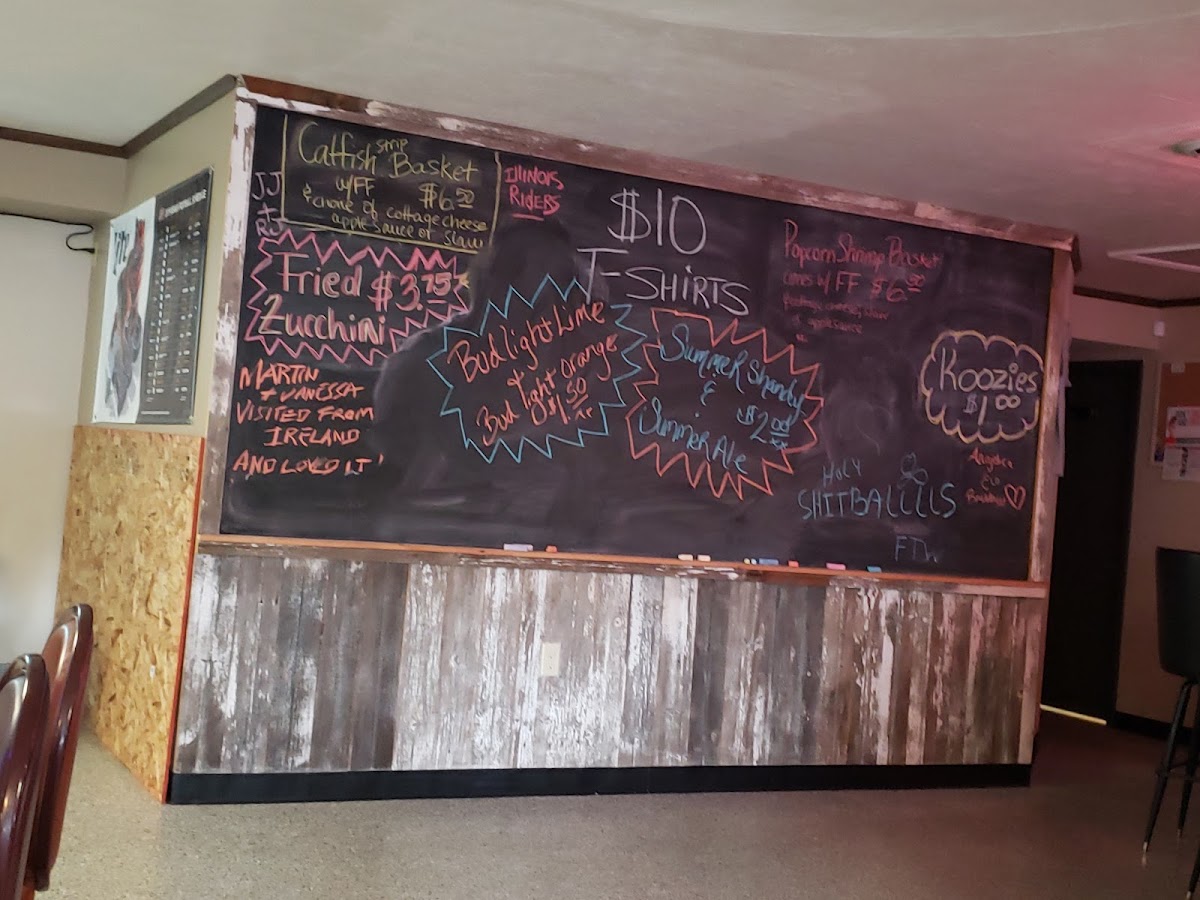 JJ
+
RJ
Catfish strip Basket
w/FF $6.50
& choice of cottage cheese
apple sauce or slaw
Fried $3.75
Zucchini
MARTIN
+ VANESSA
VISITED FROM
IRELAND
AND LOVED IT!
ILLINOIS
RIDERS
$10
T-SHIRTS
Bud light Lime
+
Bud light Orange
$1.50
Summer Shandy
&
$2.00
Summer Ale
Popcorn Shrimp Basket
comes w/ FF $6.50
Koozies
$1.00
HOLY
SHITBALLLLS
FTW